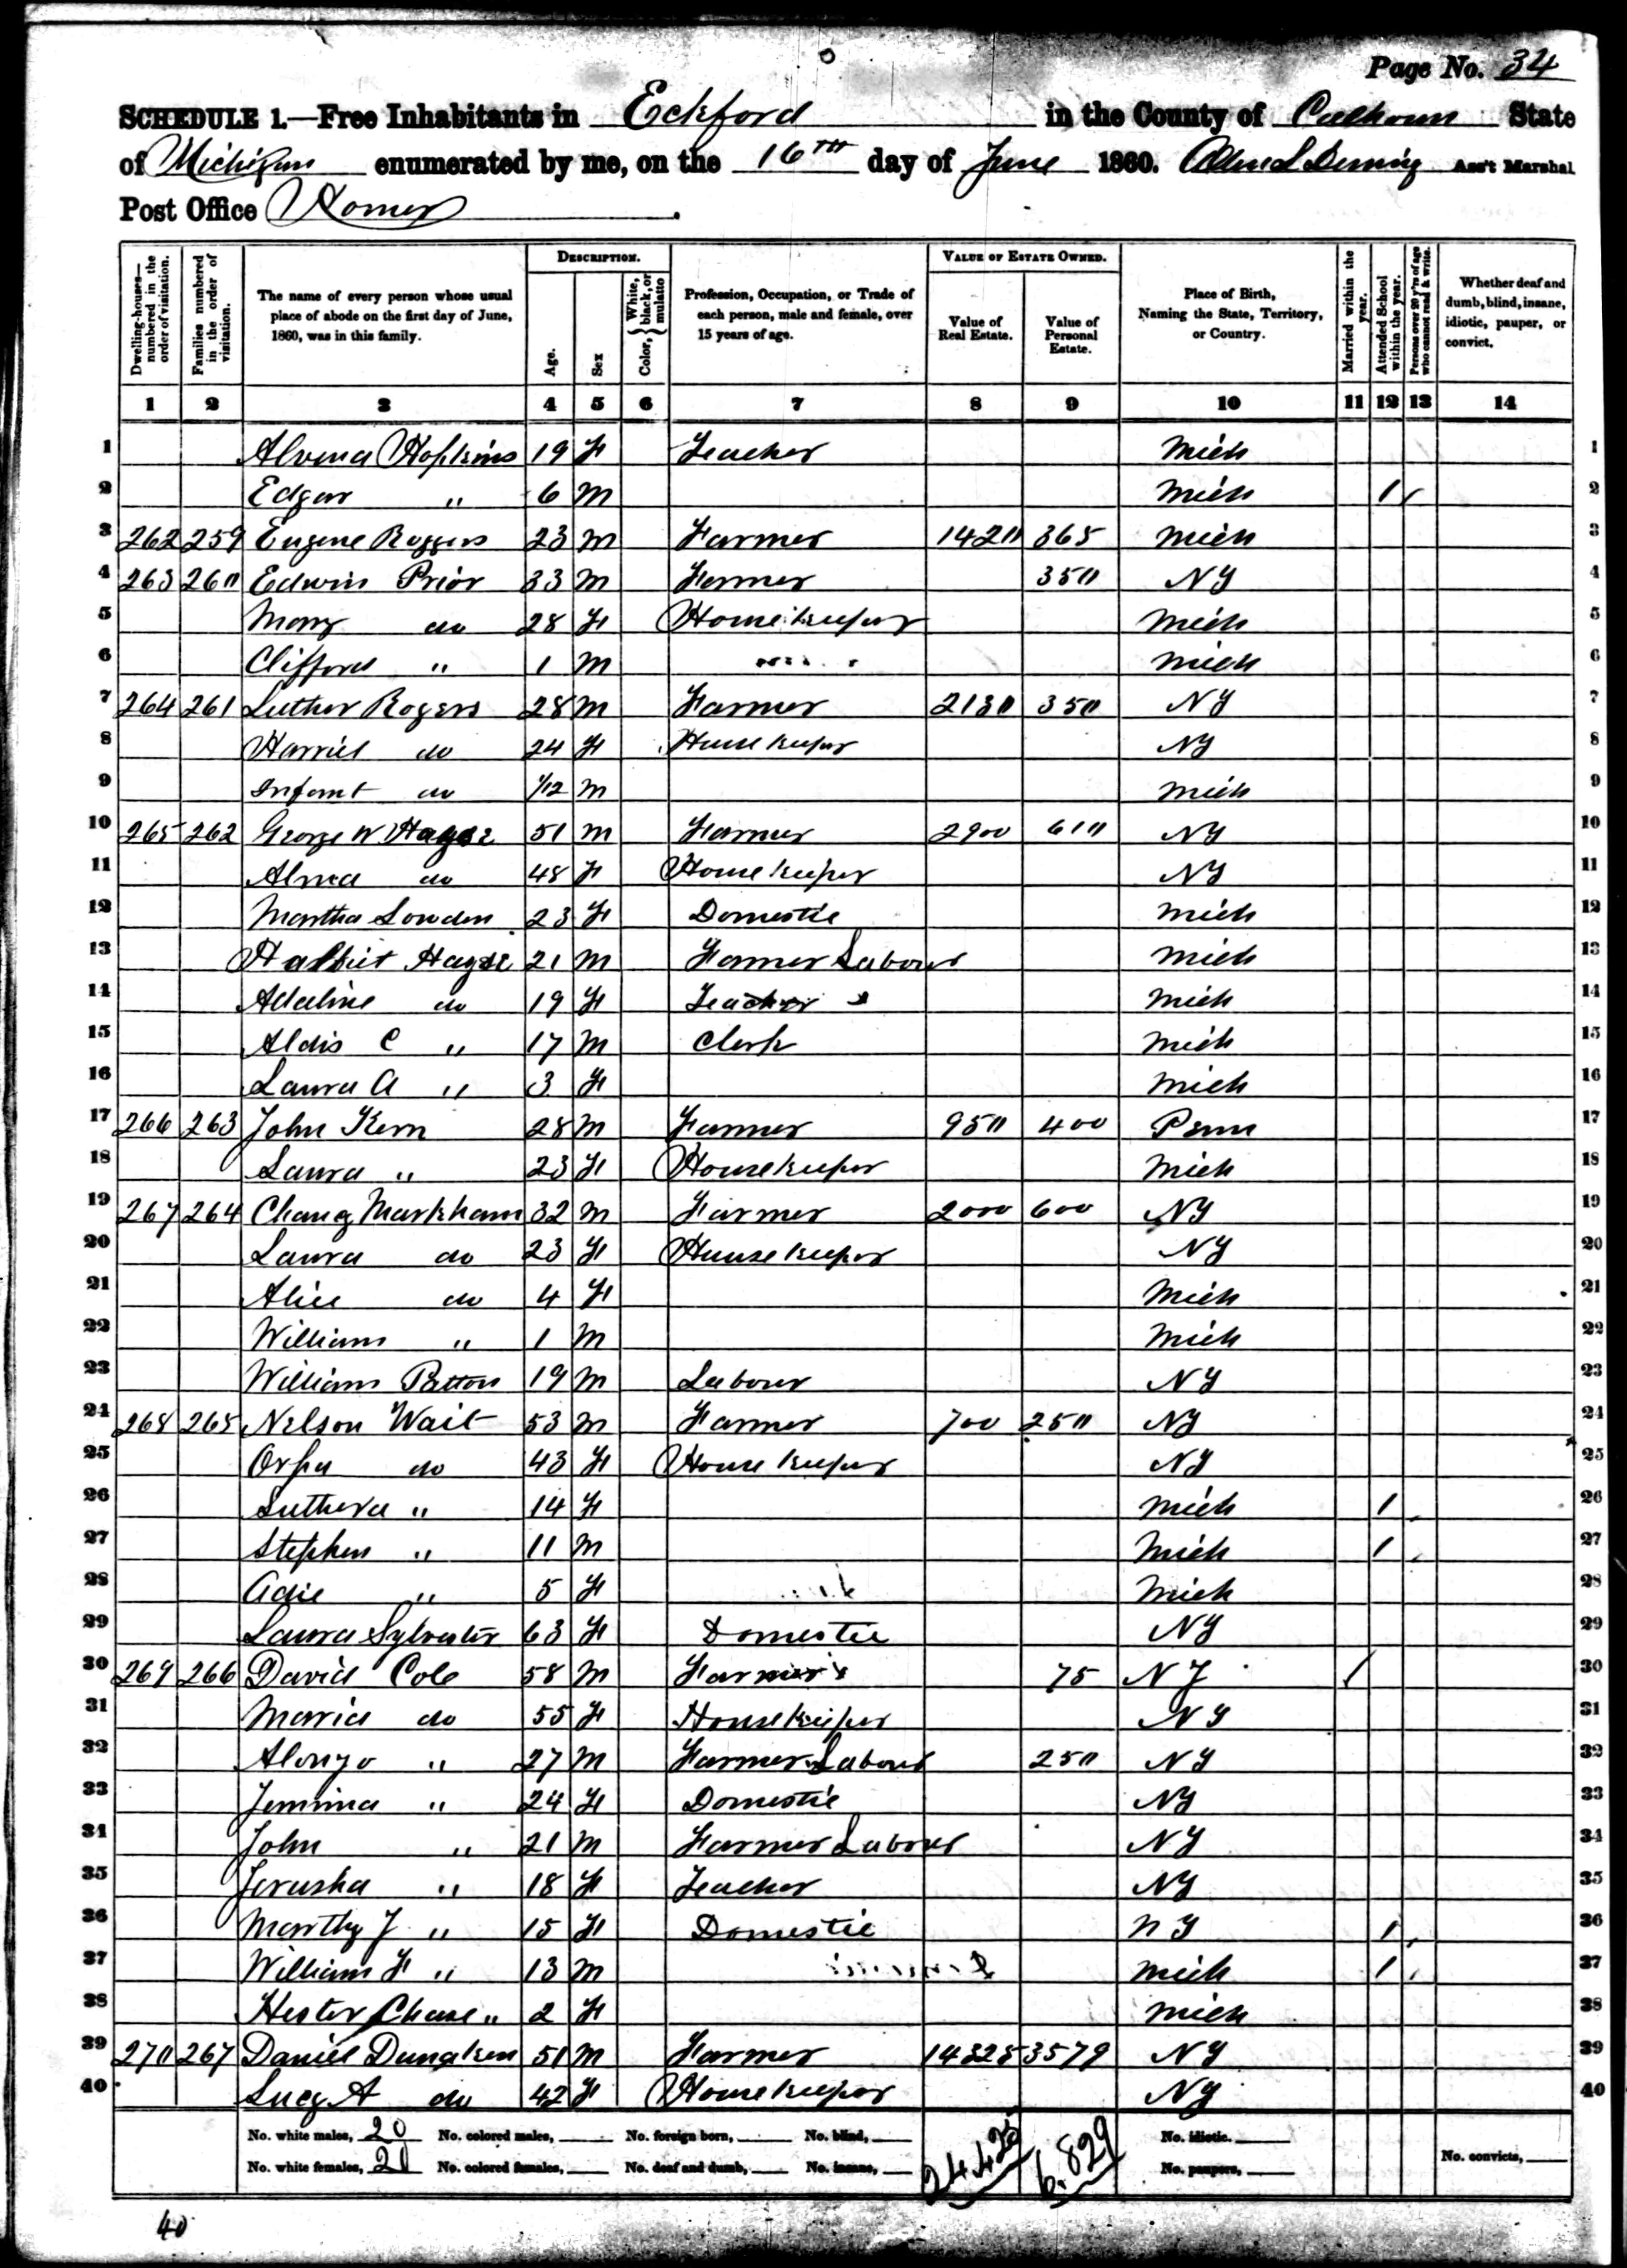 Page No. 34
SCHEDULE 1.—Free Inhabitants in Eckford in the County of Calhoun State
of Michigan enumerated by me, on the 16TH day of June 1860. Deming Ass't Marshal
Post Office Homer
Dwelling-houses—numbered in the order of visitation.
Families numbered in the order of visitation.
The name of every person whose usual place of abode on the first day of June, 1860, was in this family.
DESCRIPTION.
Age.
Sex
Color, { White, black, or mulatto
Profession, Occupation, or Trade of each person, male and female, over 15 years of age.
VALUE OF ESTATE OWNED.
Value of Real Estate.
Value of Personal Estate.
Place of Birth, Naming the State, Territory, or Country.
Married within the year.
Attended School within the year.
Persons over 20 y'rs of age who cannot read & write.
Whether deaf and dumb, blind, insane, idiotic, pauper, or convict.
1 2 3 4 5 6 7 8 9 10 11 12 13 14
1 Alvena Hopkins 19 F Teacher Mich 1
2 Edgar " 6 M Mich 1 2
3 262 259 Eugene Roggers 23 M Farmer 1420 365 Mich 3
4 263 260 Edwin Prior 33 M Farmer 350 NY 4
5 Mary do 28 F House keeper Mich 5
6 Clifford " 1 M Mich 6
7 264 261 Luther Rogers 28 M Farmer 2130 350 NY 7
8 Harriet do 24 F House keeper NY 8
9 Infant do 1/12 M Mich 9
10 265 262 George W. 51 M Farmer 2900 610 NY 10
11 Alma do 48 F House keeper NY 11
12 Martha Lowden 23 F Domestic Mich 12
13 21 M Farmer Labour Mich 13
14 Adaline do 19 F Teacher Mich 14
15 Aldis C " 17 M Clerk Mich 15
16 Laura A " 3 F Mich 16
17 266 263 John Kern 28 M Farmer 950 400 Penn 17
18 Laura " 23 F House keeper Mich 18
19 267 264 Markham 32 M Farmer 2000 600 NY 19
20 Laura do 23 F House keeper NY 20
21 Alice do 4 F Mich 21
22 William " 1 M Mich 22
23 William Patton 19 M Labour NY 23
24 268 265 Nelson Wait 53 M Farmer 700 250 NY 24
25 Orpha do 43 F House keeper NY 25
26 Luthera " 14 F Mich 1 26
27 Stephen " 11 M Mich 1 27
28 Adie " 5 F Mich 28
29 Laura Sylvester 63 F Domestic NY 29
30 269 266 David Cole 58 M Farmer 75 NJ / 30
31 Maria do 55 F House keeper NY 31
32 Alonzo " 27 M Farmer Labour 250 NY 32
33 Jemima " 24 F Domestic NY 33
34 John " 21 M Farmer Labour NY 34
35 Jerusha " 18 F Teacher NY 35
36 J " 15 F Domestic NY 1 36
37 William F " 13 M Mich 1 37
38 Hester Chase " 2 F Mich 38
39 270 267 Daniel Dunakin 51 M Farmer 14325 3579 NY 39
40 Lucy A do 42 F House keeper NY 40
No. white males, 20 No. colored males, No. foreign born, No. blind, 24.425 6.829 No. idiotic.
No. white females, 20 No. colored females, No. deaf and dumb, No. insane, No. paupers, No. convicts,
40